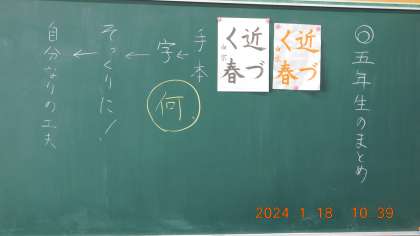 め 五年生のまとめ
近づ
く春
近づ
く春
手本
↓
字
何
↓
そっくりに！
↓
自分なりの工夫
2024 1 18 10 39